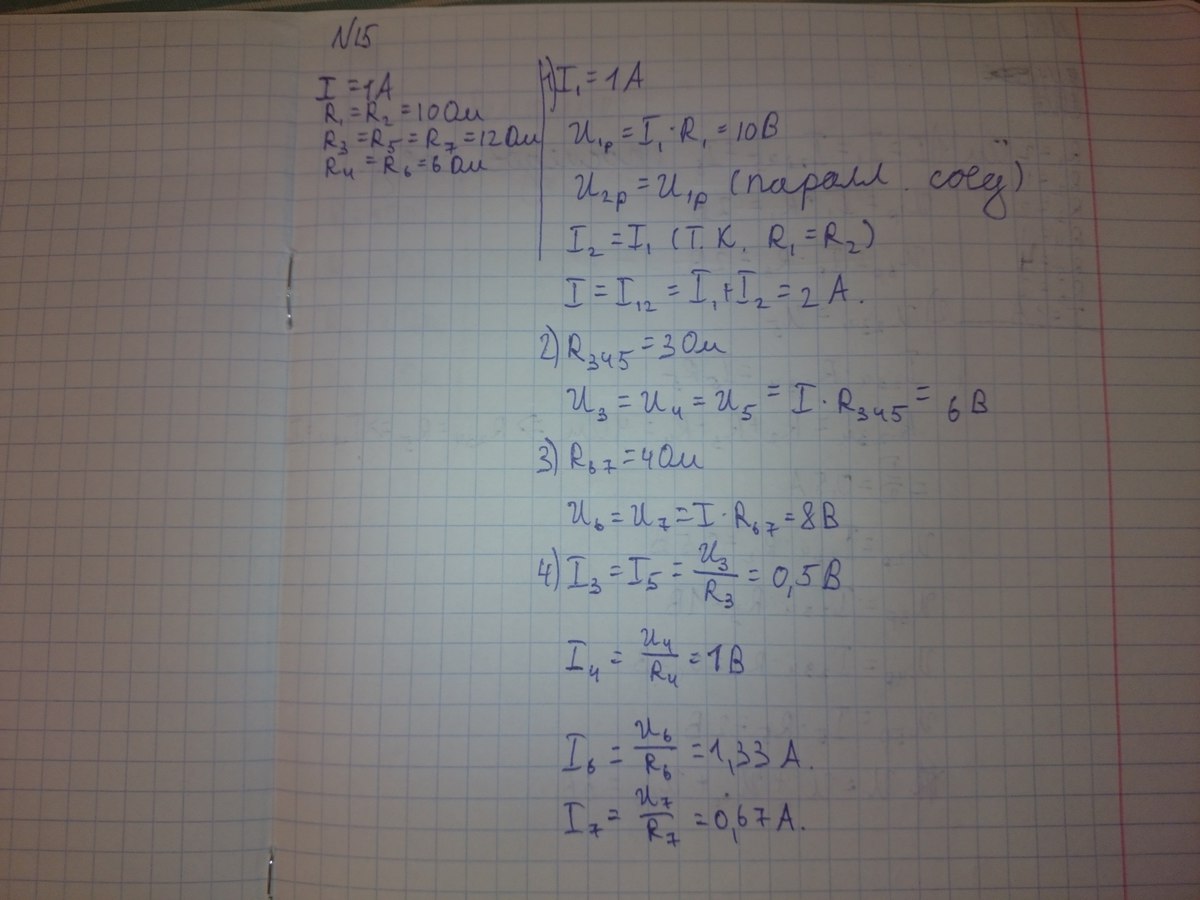 N15
I = 1A
R₁ = R₂ = 10 Ом
R₃ = R₅ = R₇ = 12 Ом
R₄ = R₆ = 6 Ом
1) I₁ = 1 A
U₁р = I₁ · R₁ = 10 В
U₂р = U₁р (паралл. соед)
I₂ = I₁ (т.к. R₁ = R₂)
I = I₁₂ = I₁ + I₂ = 2 A.
2) R₃₄₅ = 3 Ом
U₃ = U₄ = U₅ = I · R₃₄₅ = 6 В
3) R₆₇ = 4 Ом
U₆ = U₇ = I · R₆₇ = 8 В
4) I₃ = I₅ = U₃/R₃ = 0,5 В
I₄ = U₄/R₄ = 1 В
I₆ = U₆/R₆ = 1,33 A.
I₇ = U₇/R₇ = 0,67 A.